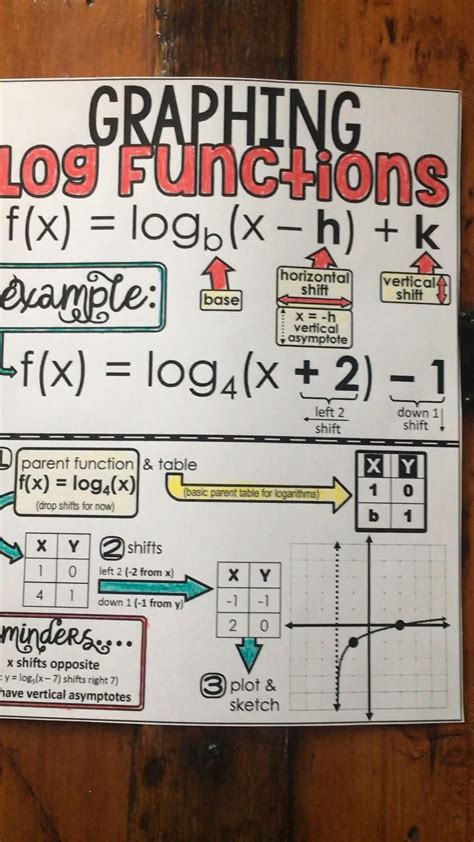 GRAPHING
Log Functions
f(x) = log_b(x − h) + k
example:
base
horizontal
shift
x = -h
vertical
asymptote
vertical
shift
f(x) = log₄(x + 2) − 1
left 2
shift
down 1
shift
1 parent function & table
f(x) = log₄(x)
(drop shifts for now)
(basic parent table for logarithms)
X Y
1 0
b 1
X Y
1 0
4 1
2 shifts
left 2 (-2 from x)
down 1 (-1 from y)
X Y
-1 -1
2 0
3 plot &
sketch
minders....
x shifts opposite
: y = log₅(x − 7) shifts right 7)
have vertical asymptotes